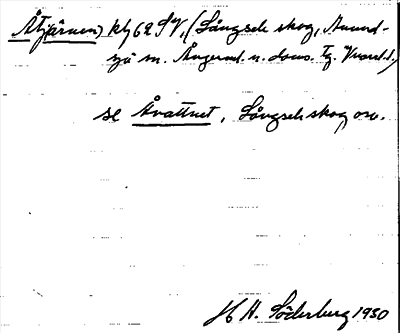 Åtjärnen) kbl 62 SV, (Långsele skog, Anund-
sjö sn. Ångerml. n. doms. tg. Vward.)
se Åvattnet, Långsele skog osv.
H H. Söderberg 1930